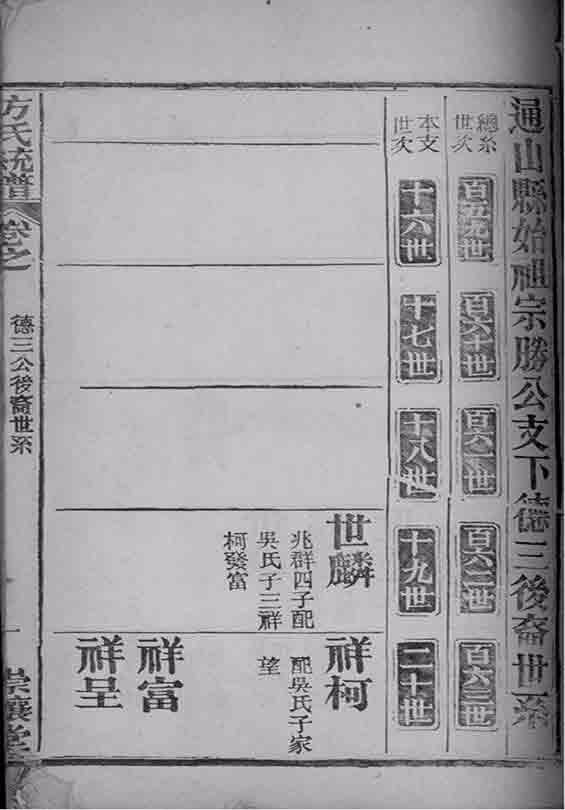 通山縣始祖宗勝公支下德三後裔世系
總系
世次
百五九世
百六十世
百六一世
百六二世
百六三世
本支
世次
十六世
十七世
十八世
十九世
二十世
世麟
兆群四子配
吳氏子三祥
柯發富
祥柯
配吳氏子家
望
祥富
祥呈
方氏統譜
卷之
德三公後裔世系
一
崇讓堂